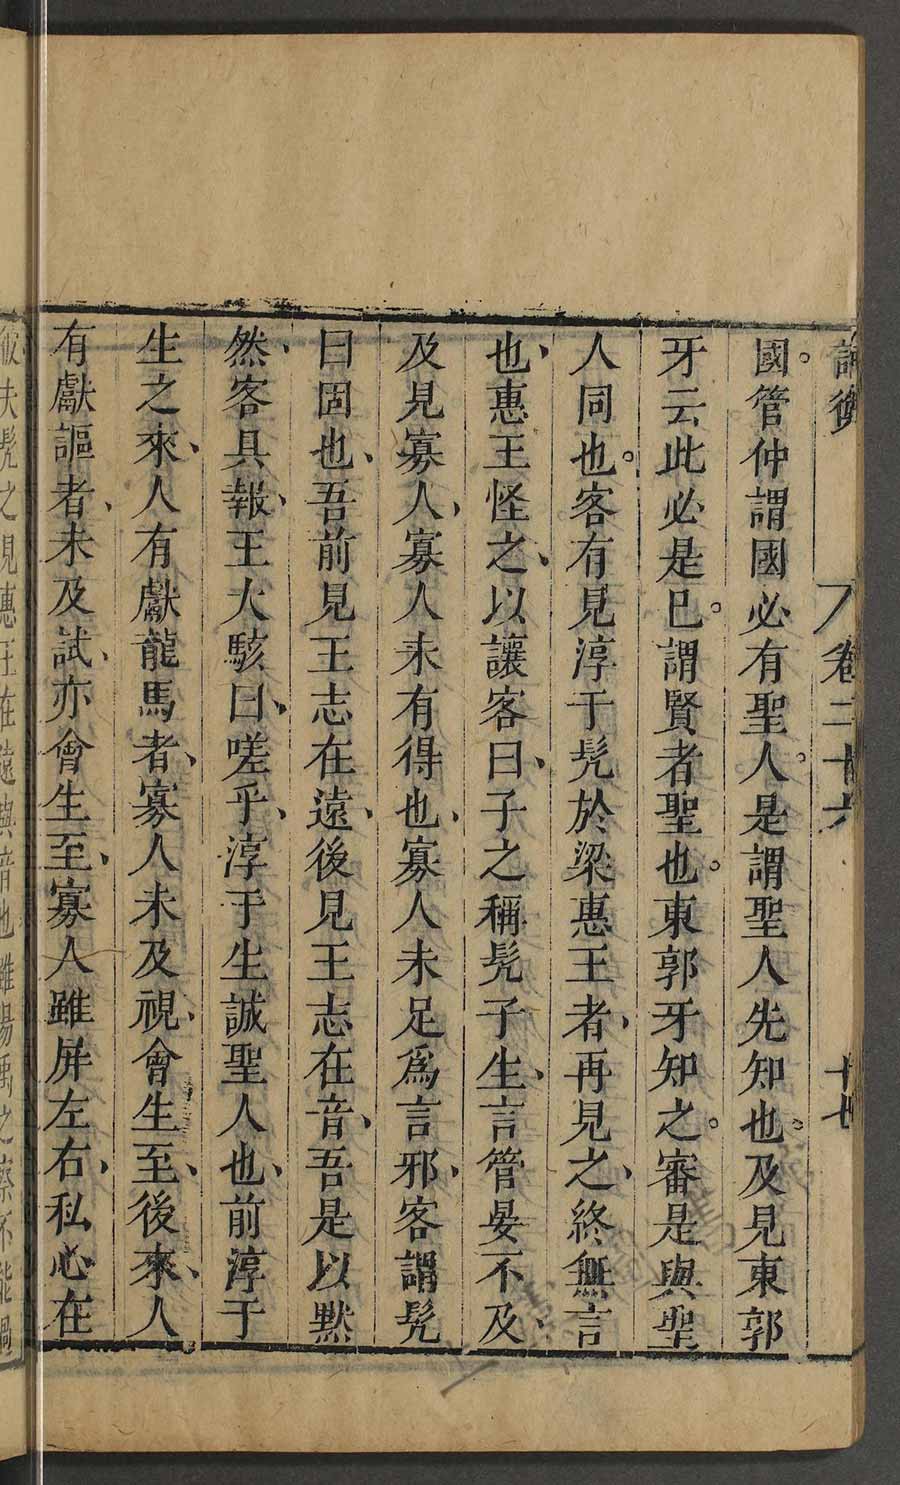 論衡 卷二十六 十七
國。管仲謂國必有聖人。是謂聖人先知也。及見東郭
牙云此必是已。謂賢者聖也。東郭牙知之。審是與聖
人同也。客有見淳于髡於梁惠王者、再見之、終無言
也、惠王怪之、以讓客曰、子之稱髡子生、言管晏不及、
及見寡人、寡人未有得也、寡人未足爲言邪、客謂髡
曰固也、吾前見王志在遠、後見王志在音、吾是以默
然、客具報、王大駭曰、嗟乎、淳于生誠聖人也、前淳于
生之來、人有獻龍馬者、寡人未及視、會生至、後來、人
有獻謳者、未及試、亦會生至、寡人雖屏左右、私心在
夫髡之見惠王在遠與音也雖湯禹之察不能過